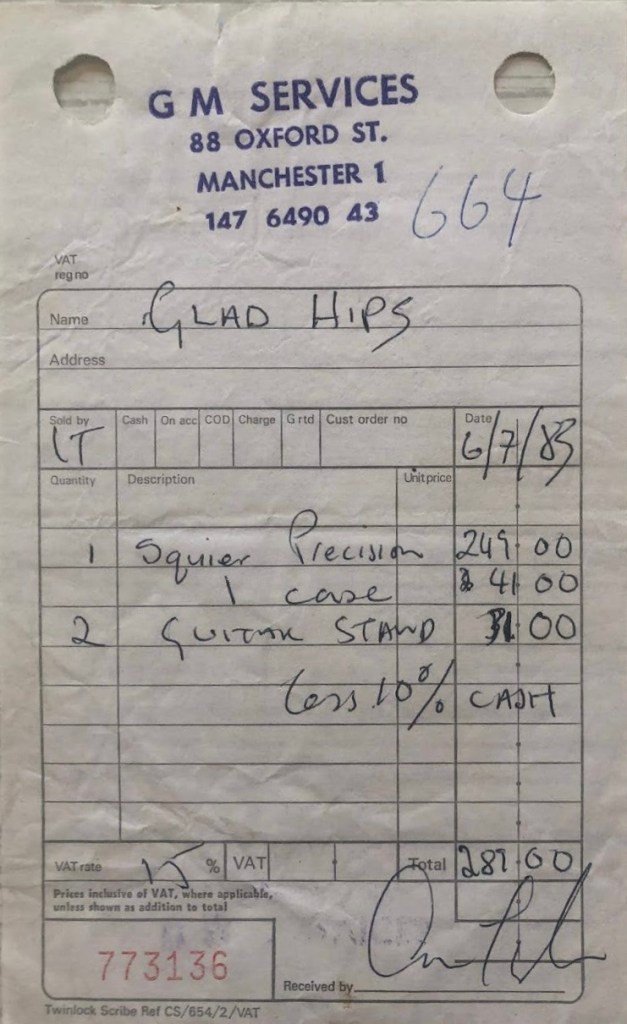 G M SERVICES
88 OXFORD ST.
MANCHESTER 1
147 6490 43
664
VAT
reg no
Name GLAD HIPS
Address
Sold by Cash On acc COD Charge Grtd Cust order no Date
IT 6/7/83
Quantity Description Unit price
1 Squier Precision 249.00
1 case 41.00
2 GUITAR STAND 31.00
Less 10% CASH
VAT rate 15 % VAT Total 289.00
Prices inclusive of VAT, where applicable,
unless shown as addition to total
773136
Received by
Twinlock Scribe Ref CS/654/2/VAT